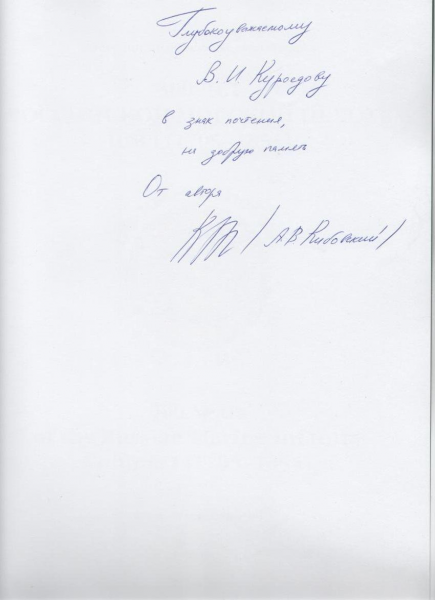 Глубокоуважаемому
В. И. Куроедову
в знак почтения,
на добрую память
От автора
/ А В Кибовский /